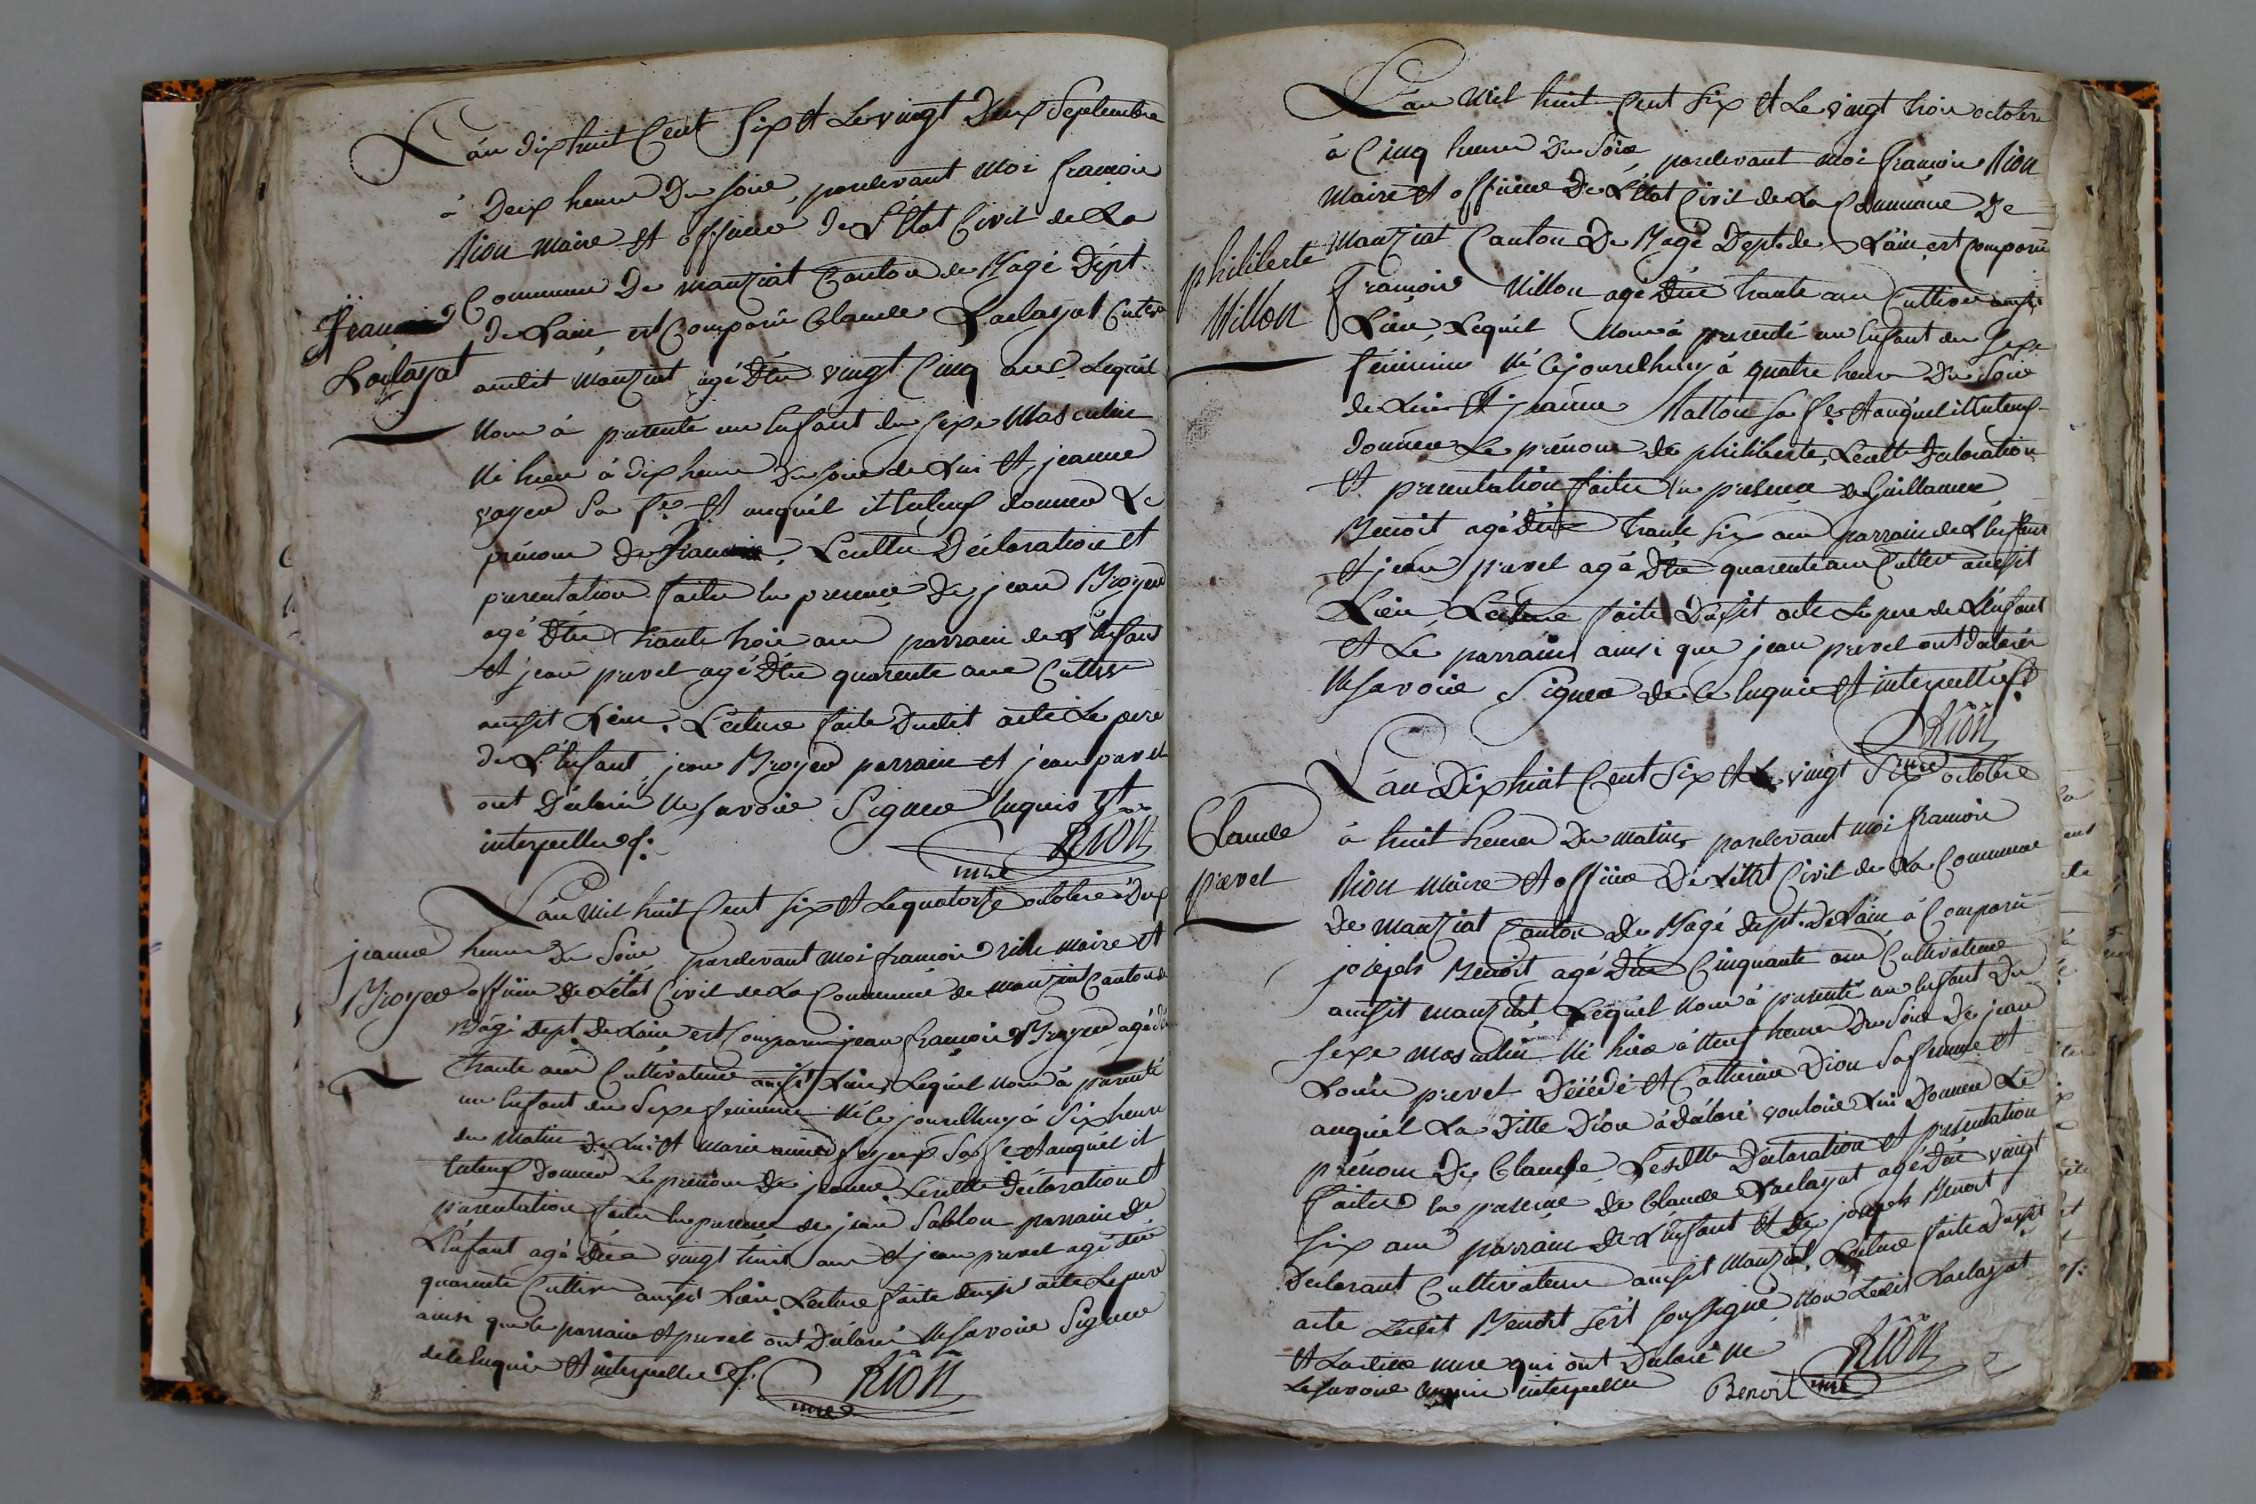 L'an dix huit Cent Six et Le vingt Deux Septembre
à Deux heure Du soire, pardevant Moi françois
Rion maire et officier de L'Etat Civil de La
Commune De manziat Canton de Bagé Dépt.
de L'ain, est Comparu Claude Laclayat Cultr
François
Laclayat
audit Manziat agé D'en vingt Cinq ans Lequel
Nous à presenté un Enfant du sexe Masculin
Né hier à dix heure Du soire de Lui et jeanne
voyer Sa fe. et auquel il Entens donner Le
prénom de françois, Lesdittes Déclaration et
presentation faites En presence De jean Broyer
agé D'en trante trois ans parrain de L'Enfant
et jean prevel agé D'en quarente ans Cultivr
audit Lieu. Lecture faite Dudit acte Le pere
de L'Enfant, jean Broyer parrain et jean prevel
ont Déclarés Ne savoire Signer Enquis Et
interpellés f.
Rion
mre
L'an Mil huit Cent Six et Le quatorze octobre à Deux
jeanne
Broyer
heure Du Soire pardevant Moi françois rion maire et
officier De L'état Civil de La Commune de manziat Canton de
Bagé Dept. De L'ain, est Comparu jean françois Broyer agé d'en
trante ans Cultivateur audit Lieu, Lequel Nous à presenté
un Enfant du Sexe feminin Né Ce jourdhuy à Six heure
du Matin De Lui et marie aimée feyeux Sa fe. et auquel il
Entens Donner Le prénom De jeanne. Lesdittes Déclaration et
presentation faites En presence de jean Sablon parrain De
L'Enfant agé D'en vingt huit ans et jean prevel agé d'en
quarente Cultivr audit Lieu. Lecture faite dudit acte Le pere
ainsi que le parrain et prevel ont Déclaré Ne savoire Signer
de ce Enquis et interpellés f.
Rion
mre
L'an Mil huit Cent Six et Le vingt trois octobre
à Cinq heure Du Soire, pardevant moi françois Rion
Maire et officier De L'Etat Civil de La Commune De
philiberte
Villon
Manziat Canton De Bagé Dept. de L'ain, est Comparu
François Villon agé D'en trante ans Cultivr audit
Lieu, Lequel Nous à presenté un Enfant du Sexe
féminin Né Cejourdhuy à quatre heure Du Soire
de Lui et jeanne Mallon sa fe. et auquel il Entens
Donner Le prénom de philiberte, Lesdittes Déclaration
et presentation faites En presence de Guillaume
Benoit agé D'en trante six ans parrain de L'Enfant
et jean prevel agé D'en quarente ans Cultivr audit
Lieu. Lecture faite Dudit acte Le pere de L'Enfant
et Le parrain ainsi que jean prevel ont Déclarés
Ne savoire Signer de ce Enquis et interpellés f.
Rion
mre
L'an Dix huit Cent Six et Le vingt Six octobre
Claude
prevel
à huit heures Du matin, pardevant moi françois
Rion maire et officier De L'Etat Civil de La Commune
De manziat Canton De Bagé dept. De L'ain à Comparu
joseph Benoit agé D'en Cinquante ans Cultivateur
audit manziat Lequel Nous à presenté un Enfant Du
sexe masculin Né hier à Neuf heure Du Soire De jean
Louis prevel Décédé et Catherine Dion Sa femme et
auquel La Ditte Dion à déclaré vouloire Lui Donner Le
prénom De Claude, Lesdittes Déclaration et presentation
faites En presence de Claude Laclayat agé D'en vingt
six ans parrain de L'Enfant et De joseph Benoit
Déclarant Cultivateur audit Manziat. Lecture faite Dudit
acte Ledit Benoit sest soussigné, non Ledit Laclayat
et La ditte mere qui ont Déclaré ne
Le savoire Enquis interpellés
Benoit
Rion
mre